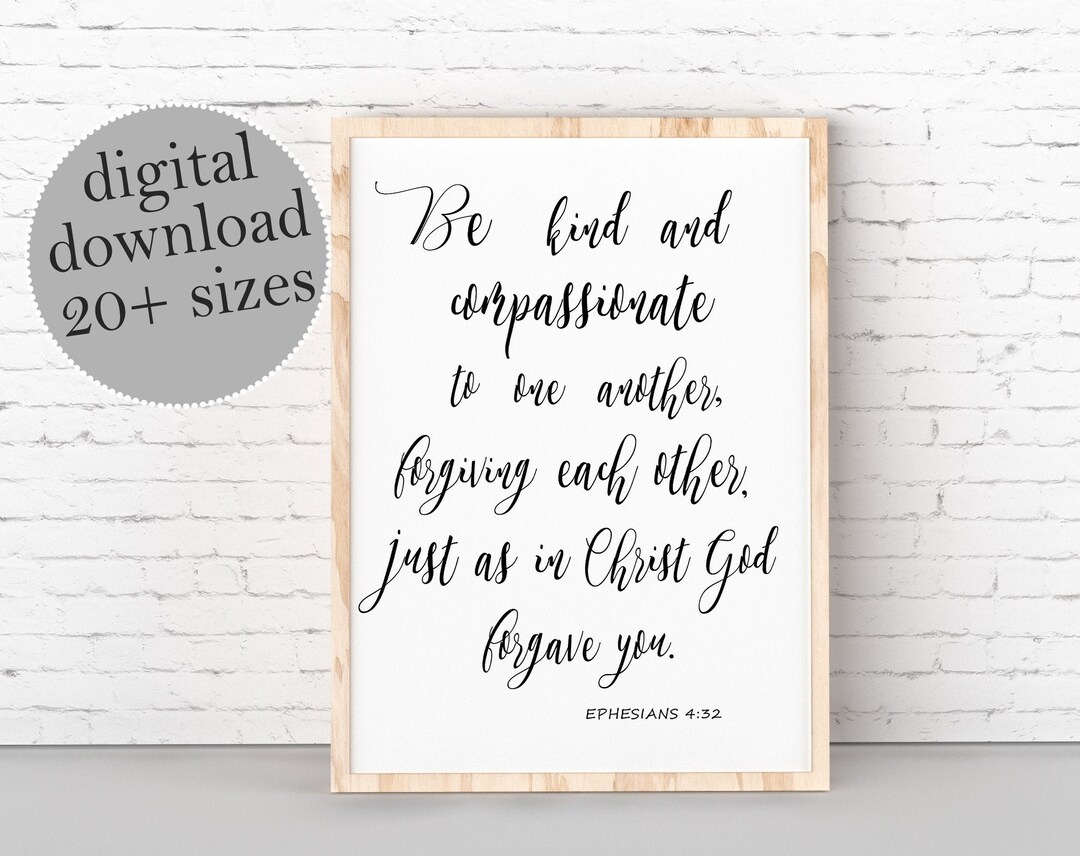 digital
download
20+ sizes
Be kind and
compassionate
to one another,
forgiving each other,
just as in Christ God
forgave you.
EPHESIANS 4:32